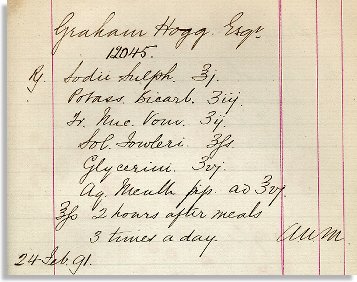 Graham Hogg. Esqr.
12045.
Rx. Sodii Sulph. ʒj.
Potass. Bicarb. ʒiij.
Tr. Nuc. Vom. ʒij
Sol. Fowleri. ʒfs
Glycerini. ʒvj.
Aq. Menth pip. ad ℥vj.
℥fs 2 hours after meals
3 times a day.
24 Feb. 91.